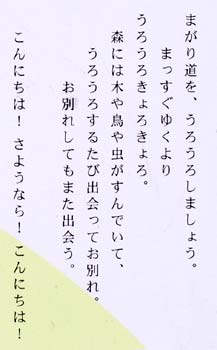 まがり道を、うろうろしましょう。
まっすぐゆくより
うろうろきょろきょろ。
森には木や鳥や虫がすんでいて、
うろうろするたび出会ってお別れ。
お別れしてもまた出会う。
こんにちは！さようなら！こんにちは！